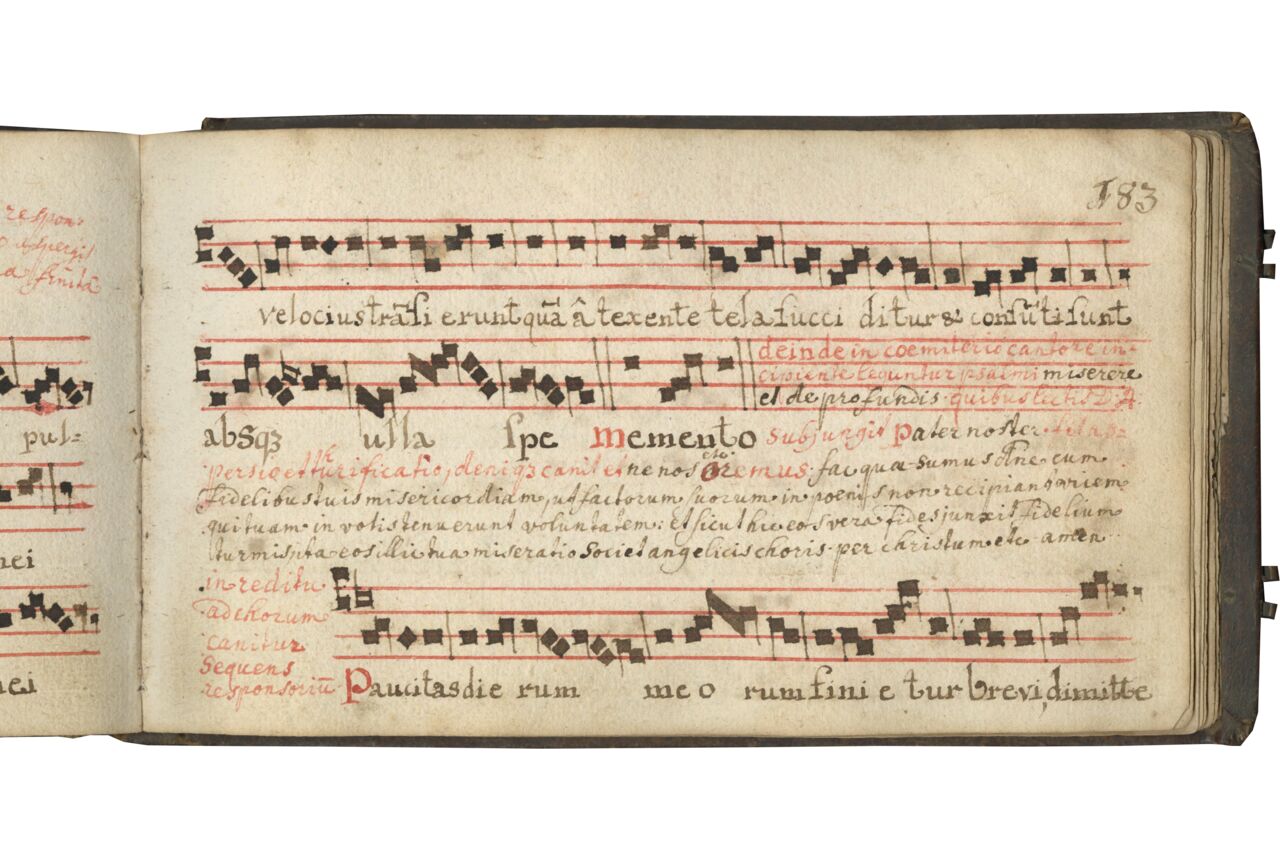 respon:
aspergit
finita
pul-
mei
mei
183
velocius trāsierunt quā â texente tela succiditur & consūti sunt
deinde in coemiterio cantore in-
cipiente leguntur psalmi miserere
et de profundis. quibus lectis D: A.
absqꝫ ulla spe Memento subjungit Pater noster. fit asp:
persio et thurificatio, deniqꝫ canit et ne nos etc. Oremus. fac quasumus dñe cum
fidelibus tuis misericordiam, ut factorum suorum in poenis non recipiant vicem
qui tuam in votis tenuerunt voluntatem: et sicut hic eos vera fides junxit fidelium
turmis, ita eos illic tua miseratio societ angelicis choris. per christum etc. amen.
in reditu
ad chorum
canitur
sequens
responsoriū Paucitas dierum meorum finietur brevi, dimitte